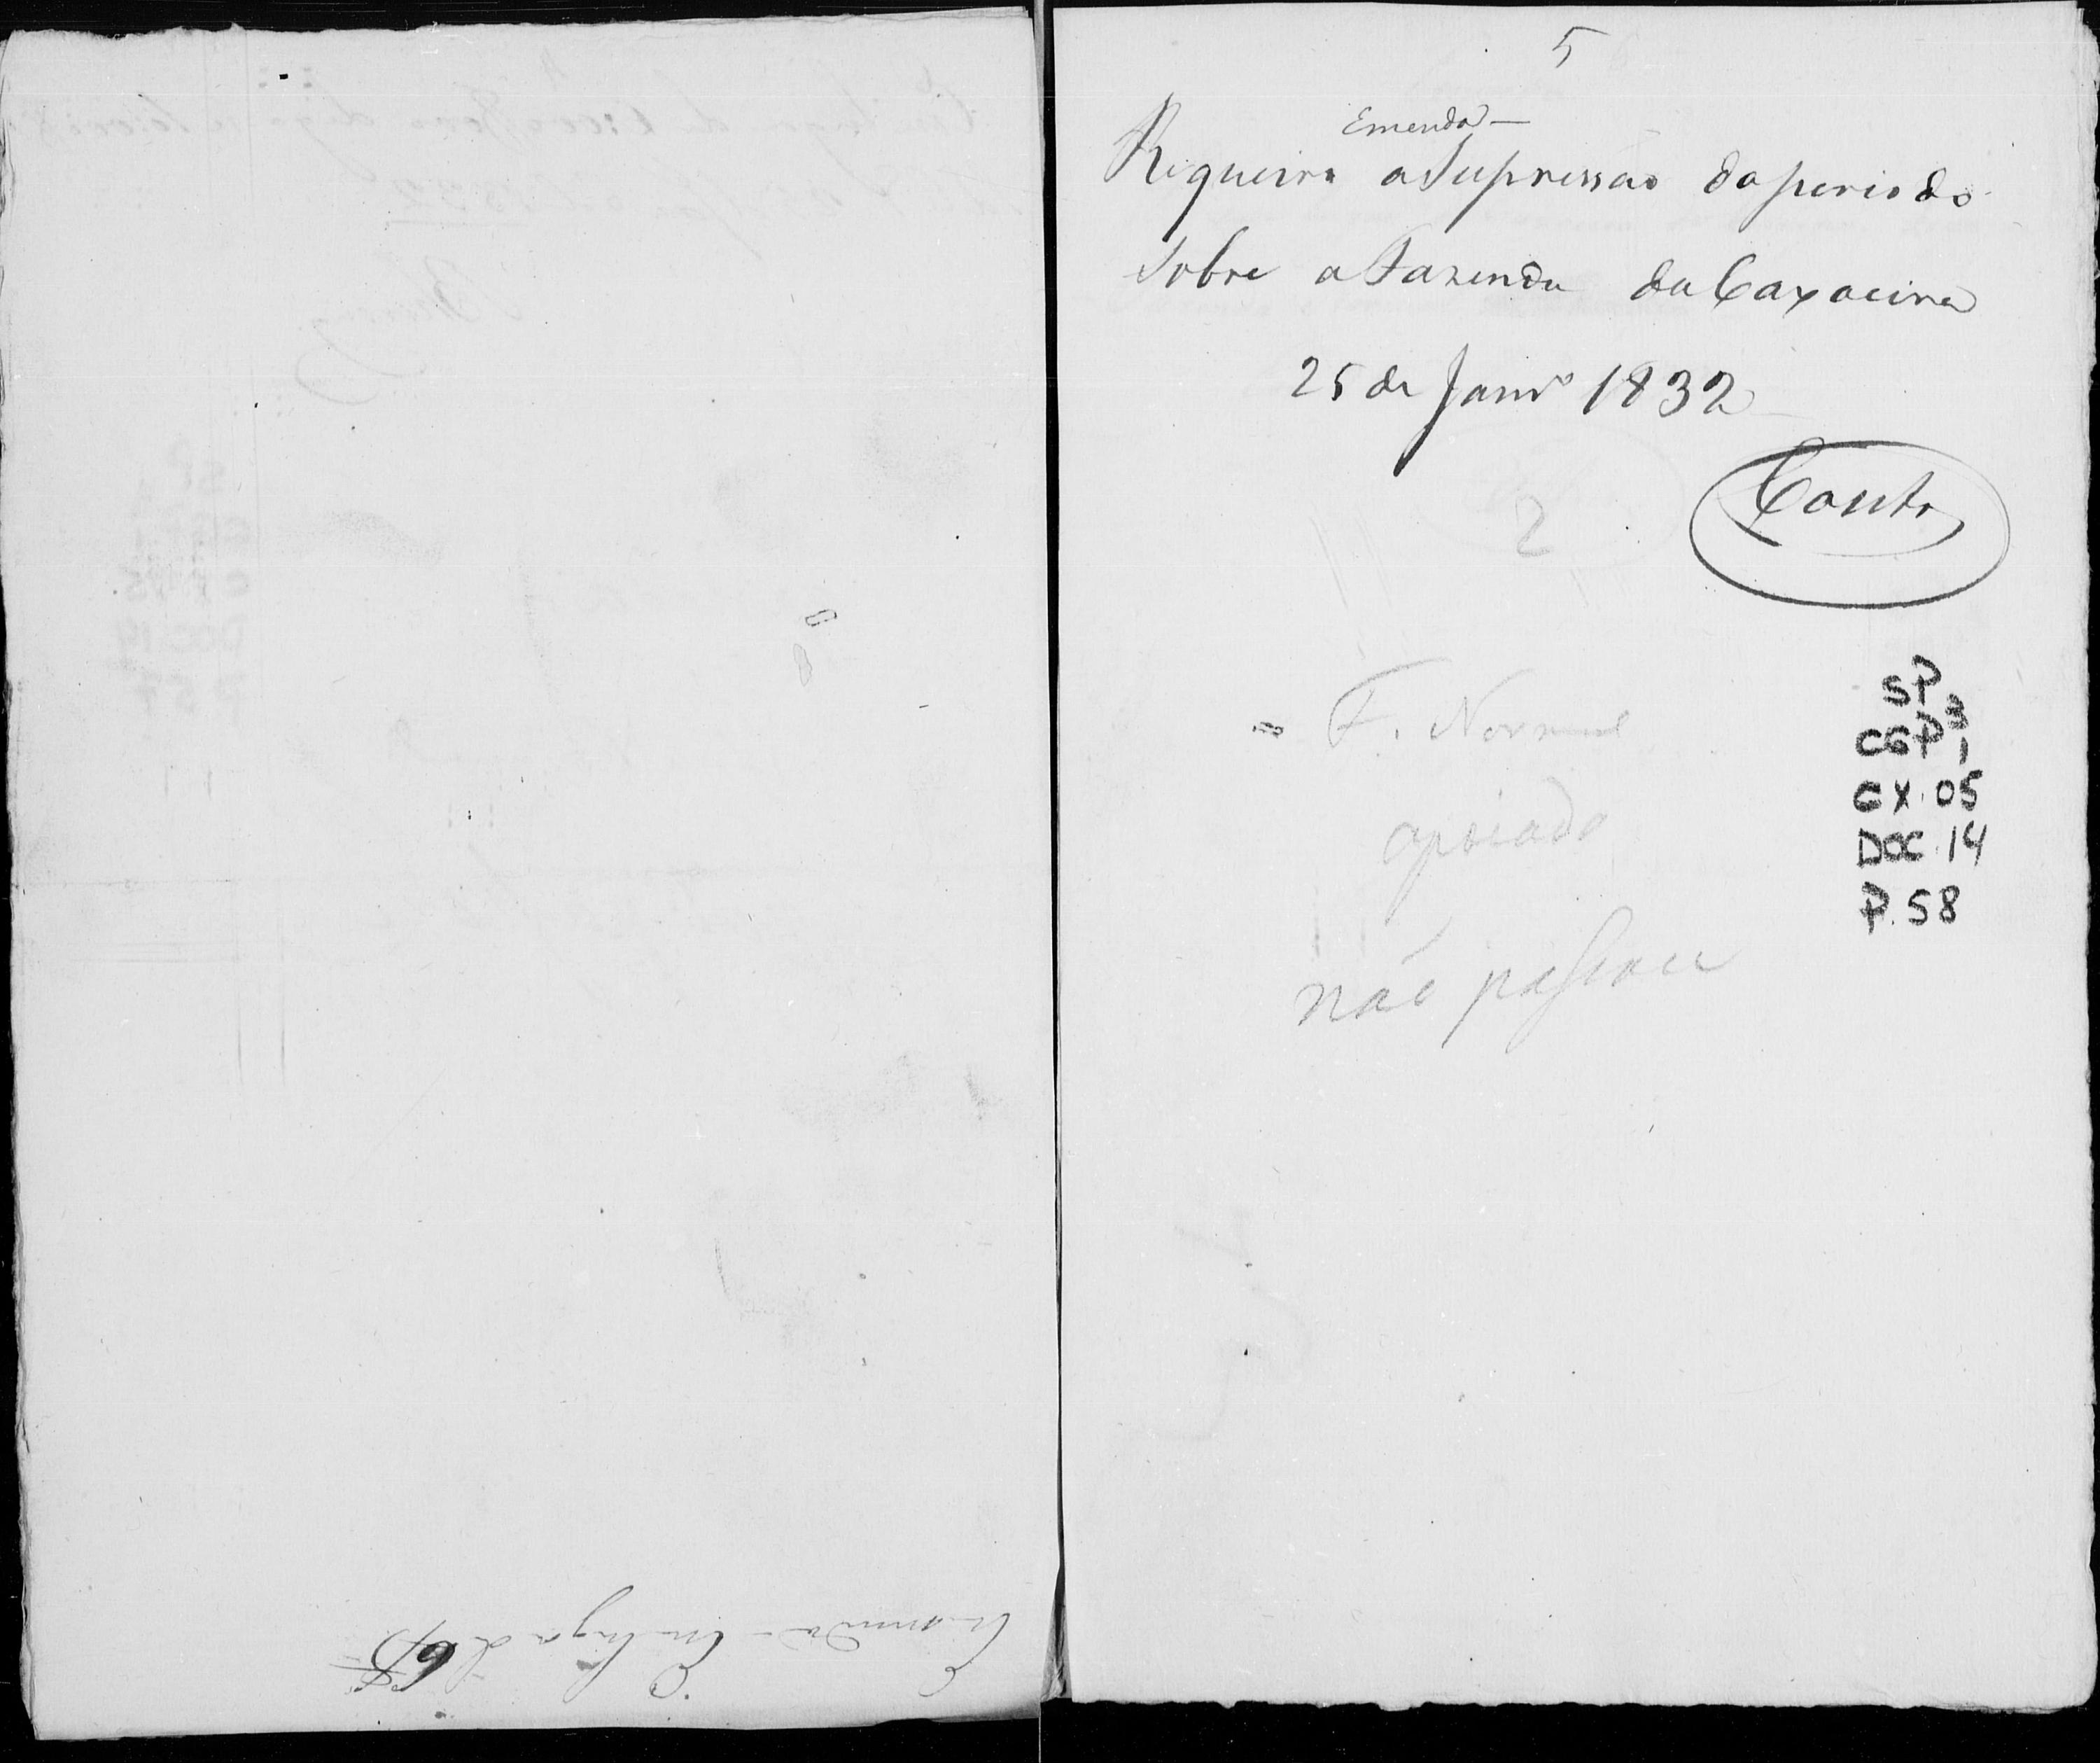 5
Emenda —
Requeiro a Supressão do periodo
Sobre a Fazenda da Caxoeira
25 de Janrº 1832
Couto
2
F. Normal
apoiado
não passou
SP
CGP 1
CX. 05
DOC. 14
P. 58
Emenda - Em lugar de